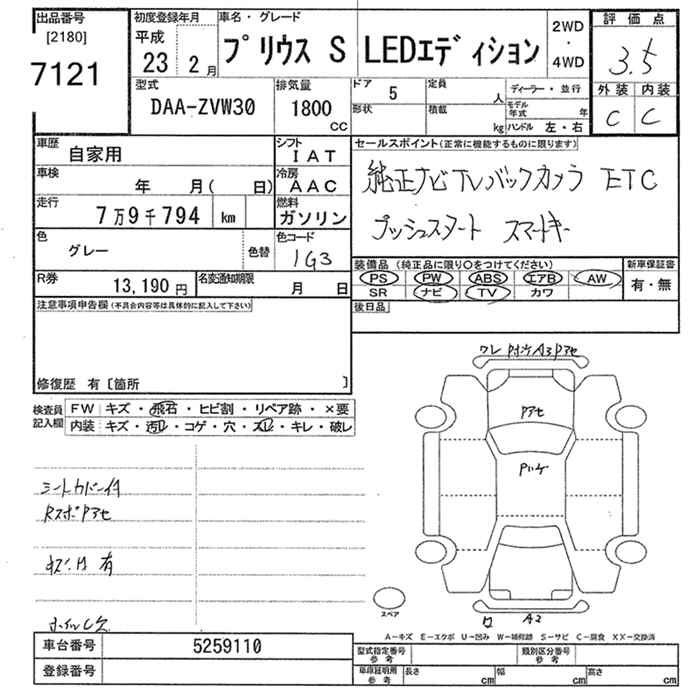 出品番号 初度登録年月 車名・グレード 評価点
[2180] 平成 プリウス S LEDエディション 2WD
7121 23 2月 ・ 3.5
4WD
型式 排気量 ドア 5 定員 人 ディーラー・並行 外装 内装
DAA-ZVW30 1800 CC 形状 積載 kg モデル年式 年 C C
ハンドル 左・右
車歴 自家用 シフト IAT セールスポイント(正常に機能するものに限ります)
車検 年 月( 日) 冷房 AAC 純正ナビTVバックカメラ ETC
走行 7万9千794 km 燃料 ガソリン プッシュスタート スマートキー
色 グレー 色替 色コード 1G3
装備品(純正品に限り○をつけてください) 新車保証書
R券 13,190円 名変通知期限 月 日 PS PW ABS エアB AW 有・無
SR ナビ TV カワ
注意事項申告欄(不具合内容等は具体的に記入して下さい) 後日品
修復歴 有〔箇所 〕
検査員記入欄 FW キズ・飛石・ヒビ割・リペア跡・×要
内装 キズ・汚れ・コゲ・穴・スレ・キレ・破レ
ワレ P付け A3 Pアセ
Pアセ
Pハゲ
シートカバー付
RスポPアセ
有
ホイルC欠
スペア
A2
A-キズ E-エクボ U-凹み W-補修跡 S-サビ C-腐食 XX-交換済
車台番号 5259110 型式指定番号 参考 類別区分番号 参考
登録番号 車庫証明用 参考 長さ cm 幅 cm 高さ cm